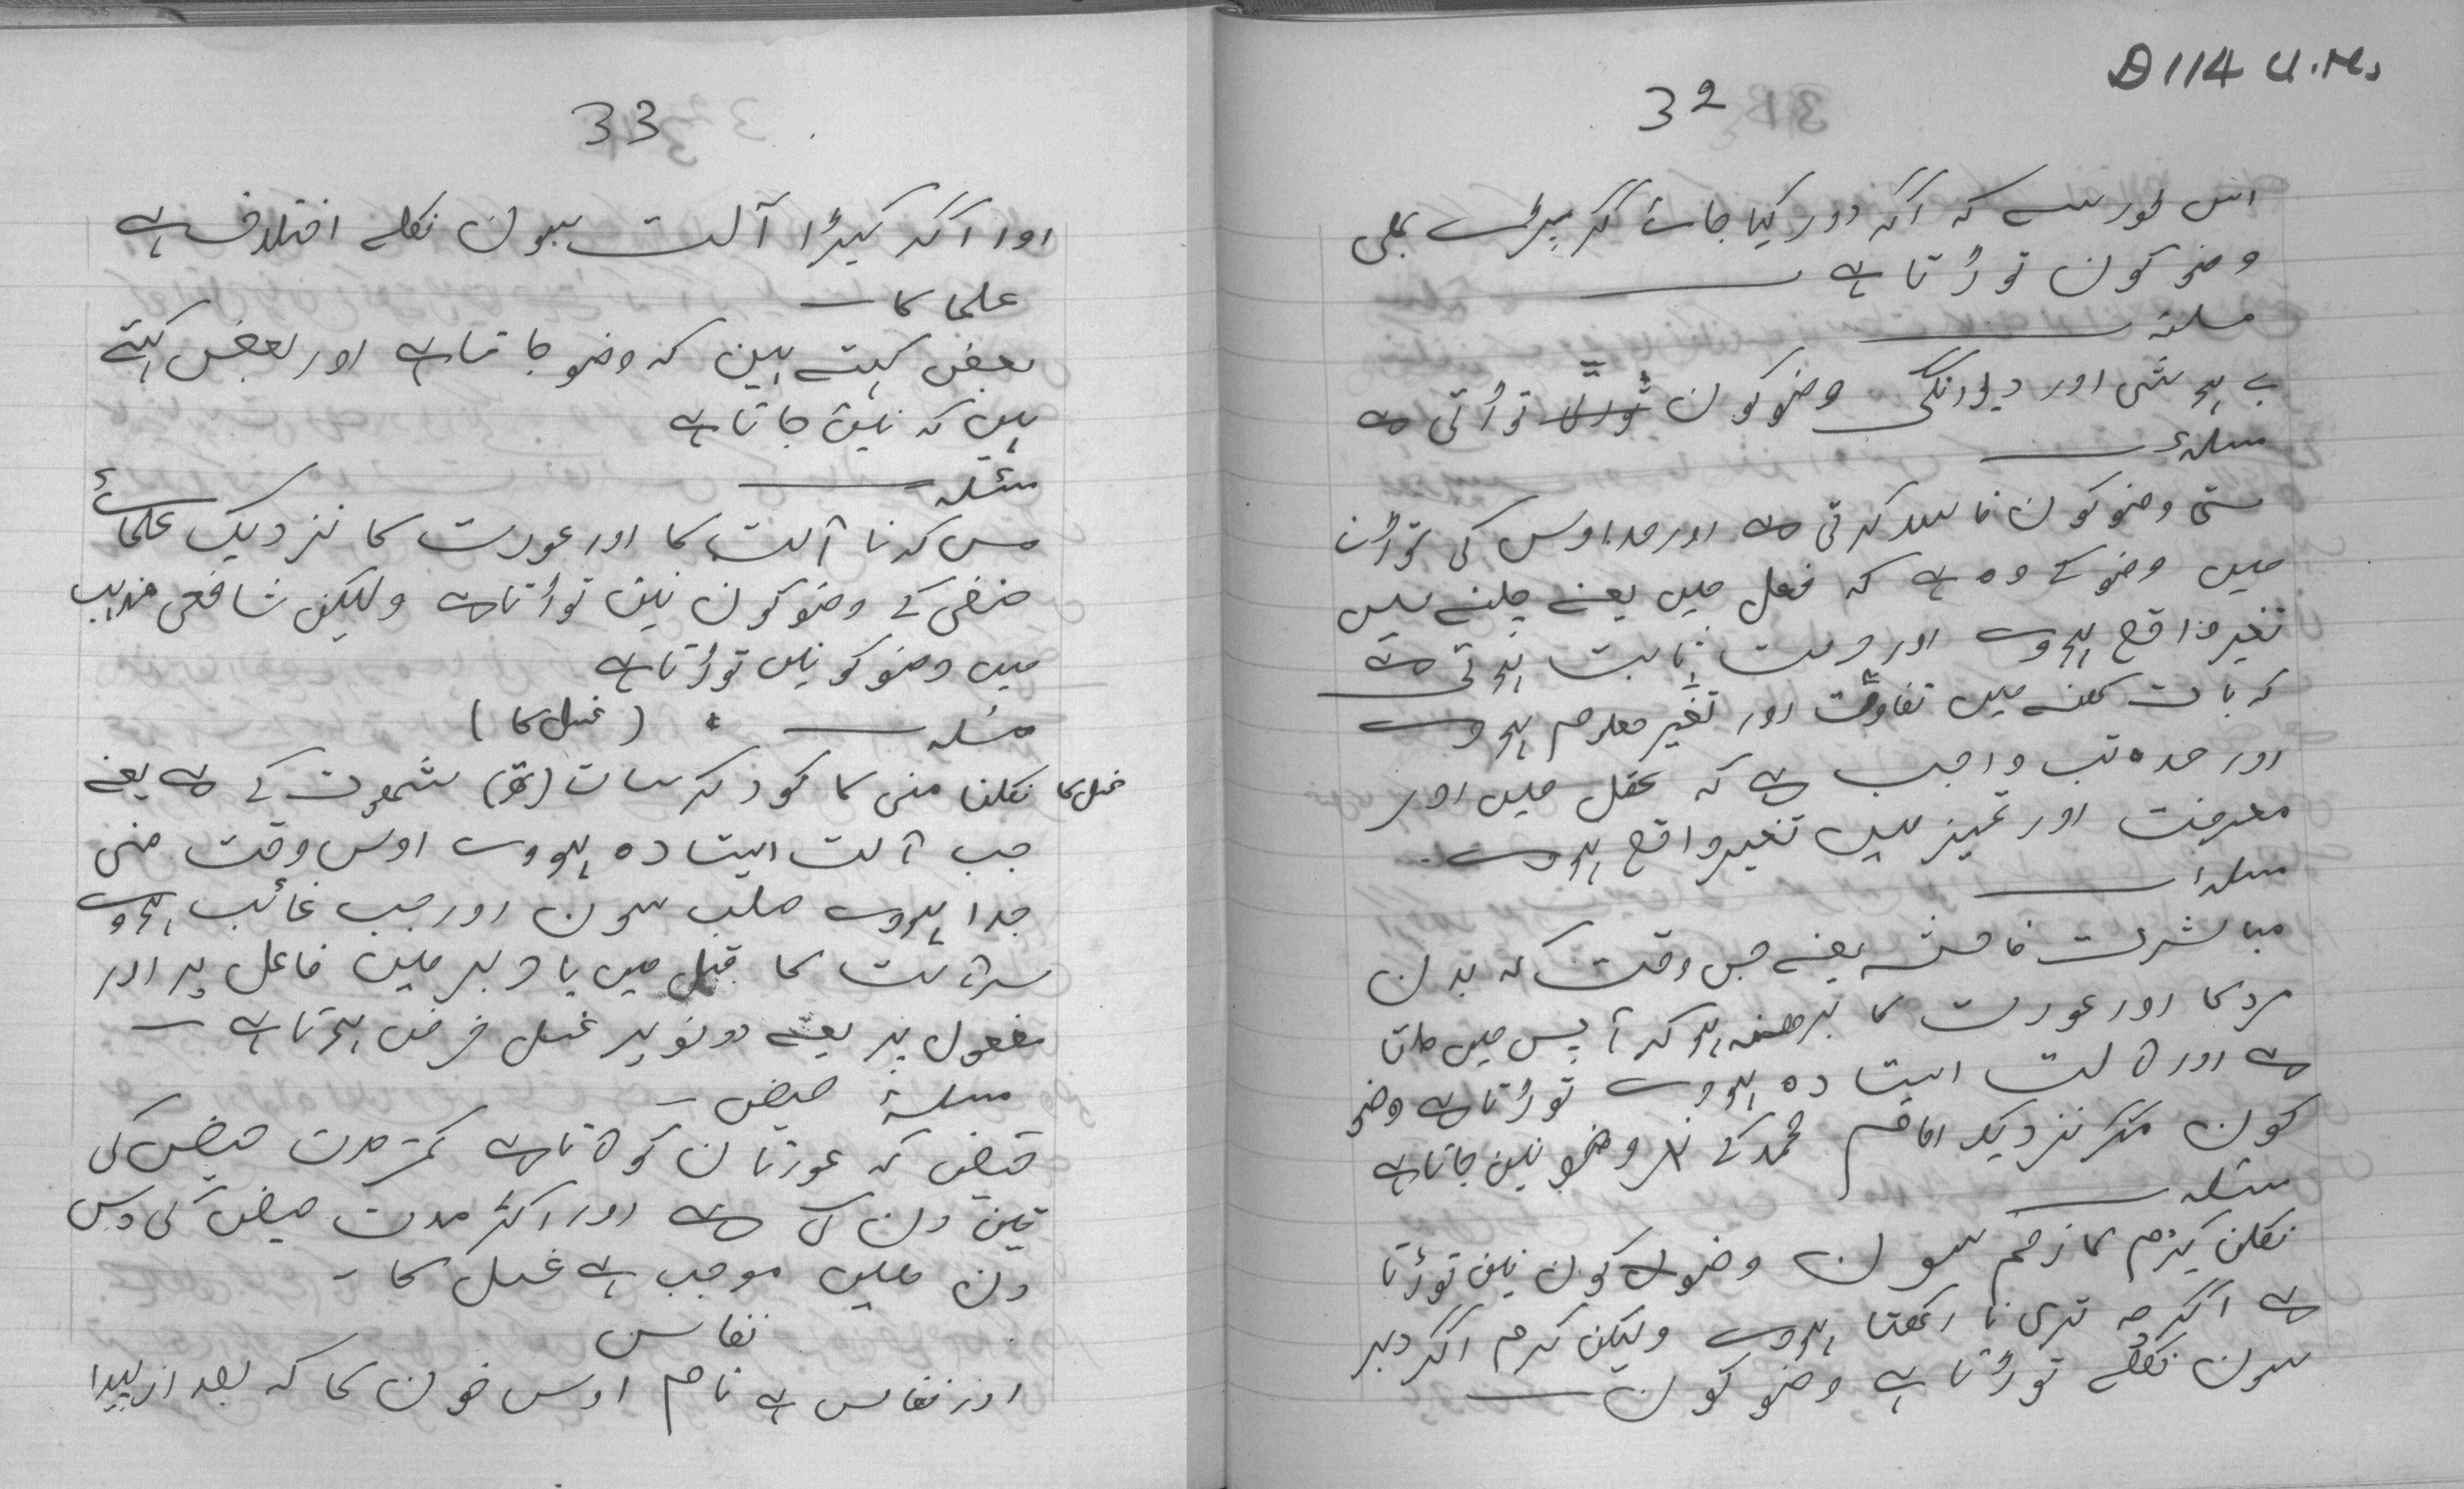 D 114 U.Ms
32
اس طور سے کہ اگر دور کیا جائے گر پڑے بھی
وضو کون توڑتا ہے
مسئلہ
بے ہوشی اور دیوانگی وضو کون توڑتی ہے
مسئلہ
مستی وضو کون فاسد کرتی ہے اور حد اوس کی توڑنے
میں وضو کے وہ ہے کہ فعل میں یعنے چلنے میں
تغیر واقع ہووے اور ثابت ہوتی ہے
کہ بات کہنے میں تفاوت اور تغیر معلوم ہووے
اور حد تب واجب ہے کہ عقل میں اور
معرفت اور تمیز میں تغیر واقع ہووے
مسئلہ
مباشرت فاحشہ یعنے جس وقت کہ بدن
مرد کا اور عورت کا برھنہ ہو کر آپس میں ملتا
ہے اور آلت ایستادہ ہووے توڑتا ہے وضو
کون مگر نزدیک امام محمد کے وضو نین جاتا ہے
مسئلہ
نکلن کیڑم کا زخم سون وضو کون نین توڑتا
ہے اگرچہ تری نا رکھتا ہووے ولیکن کرم اگر دبر
سون نکلے توڑتا ہے وضو کون
33
اور اگر کیڑا آلت سون نکلے اختلاف ہے
علما کا
بعض کہتے ہین کہ وضو جاتا ہے اور بعض کہتے
ہین کہ نین جاتا ہے
مسئلہ
مس کرنا آلت کا اور عورت کا نزدیک علمائے
حنفی کے وضو کون نین توڑتا ہے ولیکن شافعی مذہب
میں وضو کو نین توڑتا ہے
مسئلہ (غسل کا)
غسل کا نکلنا منی کا کود کر سات (تھ) شہوت کے ہے یعنے
جب آلت ایستادہ ہووے اوس وقت منی
جدا ہووے صلب سون اور جب غائب ہووے
سر آلت کا قبل میں یا دبر میں فاعل پر اور
مفعول پر یعنے دونو پر غسل فرض ہوتا ہے
مسئلہ حیض
حیض کہ عورتان کو آتا ہے کمتر مدت حیض کی
تین دن کی ہے اور اکثر مدت حیض کی دس
دن میں موجب ہے غسل کا
نفاس
اور نفاس ہے نام اوس خون کا کہ بعد از پیدا